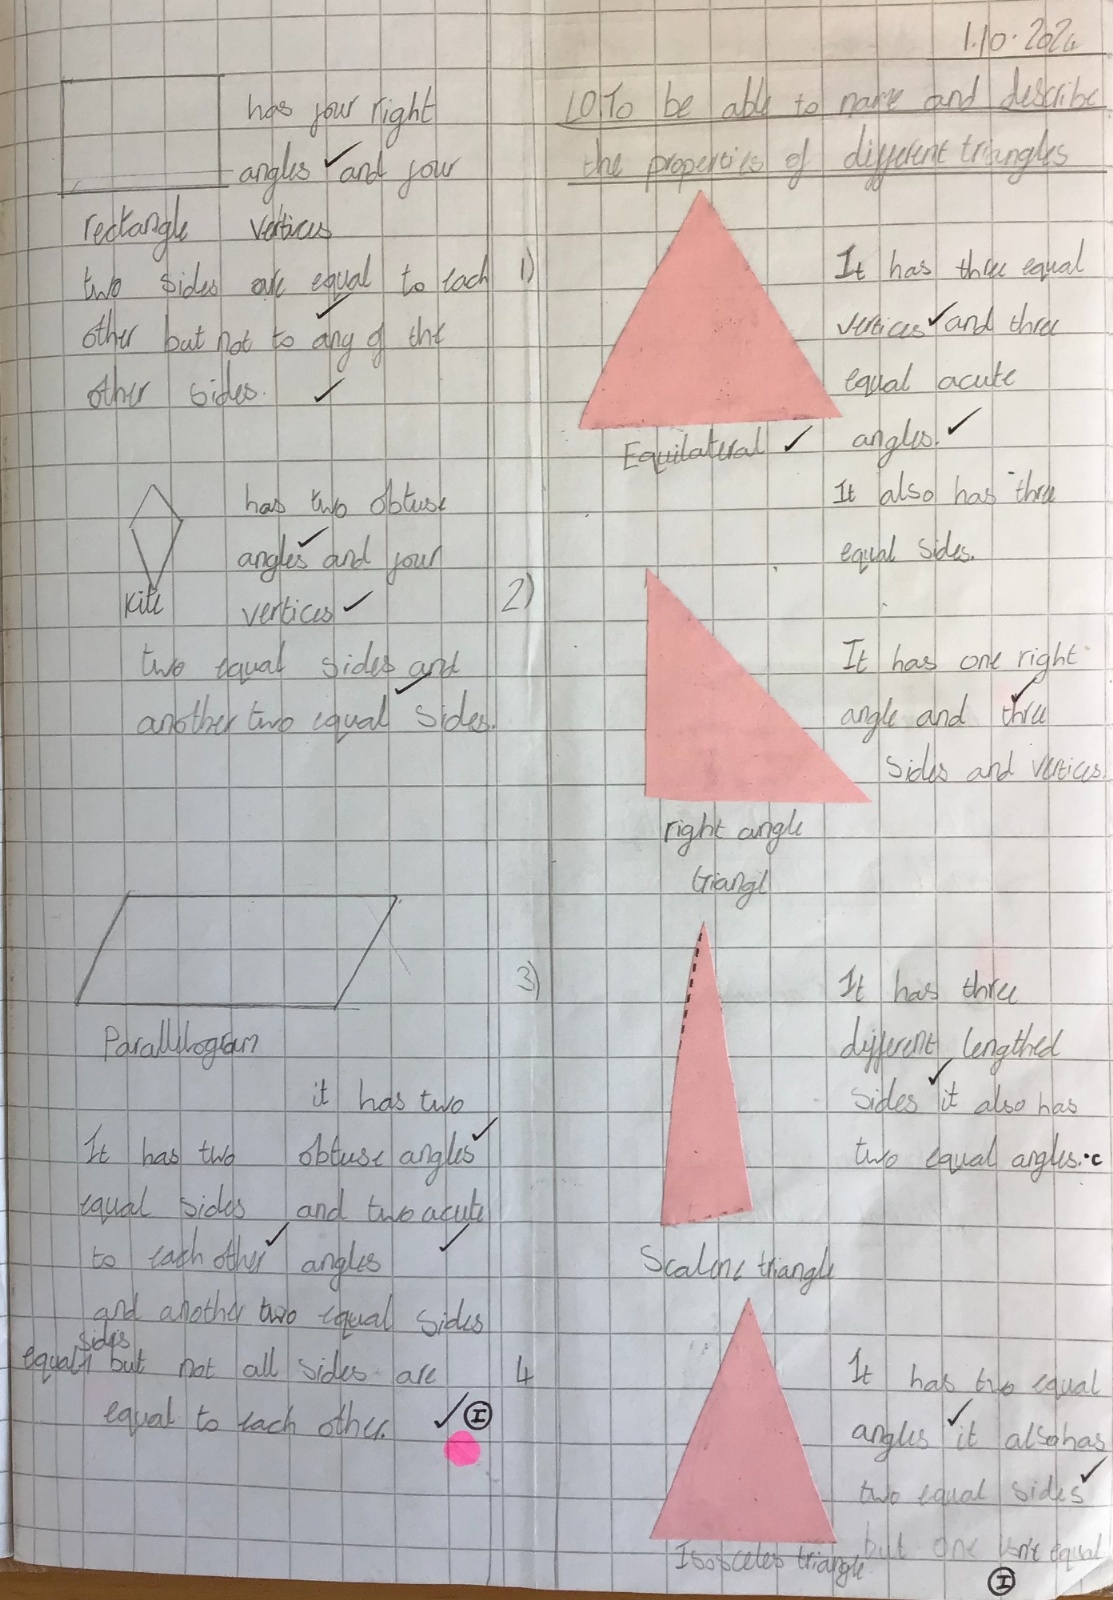 has four right
angles and four
rectangle vertices
two sides are equal to each
other but not to any of the
other sides.
has two obtuse
angles and four
Kite vertices
two equal sides and
another two equal sides.
Parallylogram
it has two
It has two obtuse angles
equal sides and two acute
to each other angles
and another two equal sides
sides
equal but not all sides are
equal to each other.
I
1.10.2024
LO.To be able to name and describe
the properties of different triangles
1) It has three equal
vertices and three
equal acute
Equilateral angles.
It also has three
equal sides.
2)
It has one right
angle and three
sides and vertices.
right angle
triangl
3) It has three
different lengthed
sides it also has
two equal angles. c
Scalene triangle
4 It has two equal
angles it also has
two equal sides
Isosceles triangle but one isn't equal
I